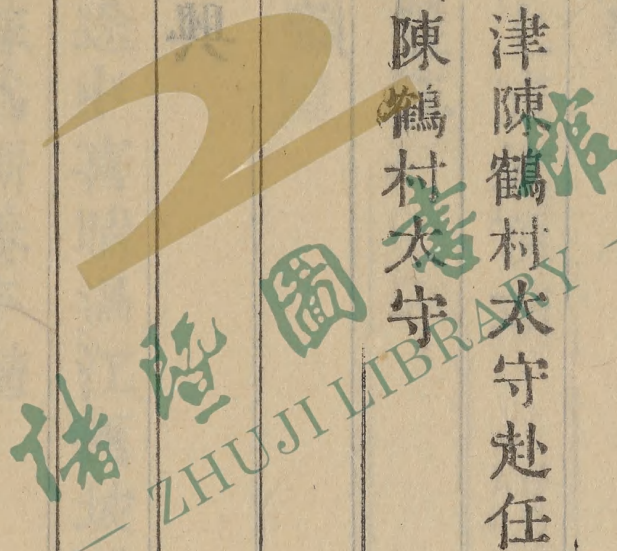 津陳鶴村太守赴任
陳鶴村太守
諸暨圖書館
— ZHUJI LIBRARY —